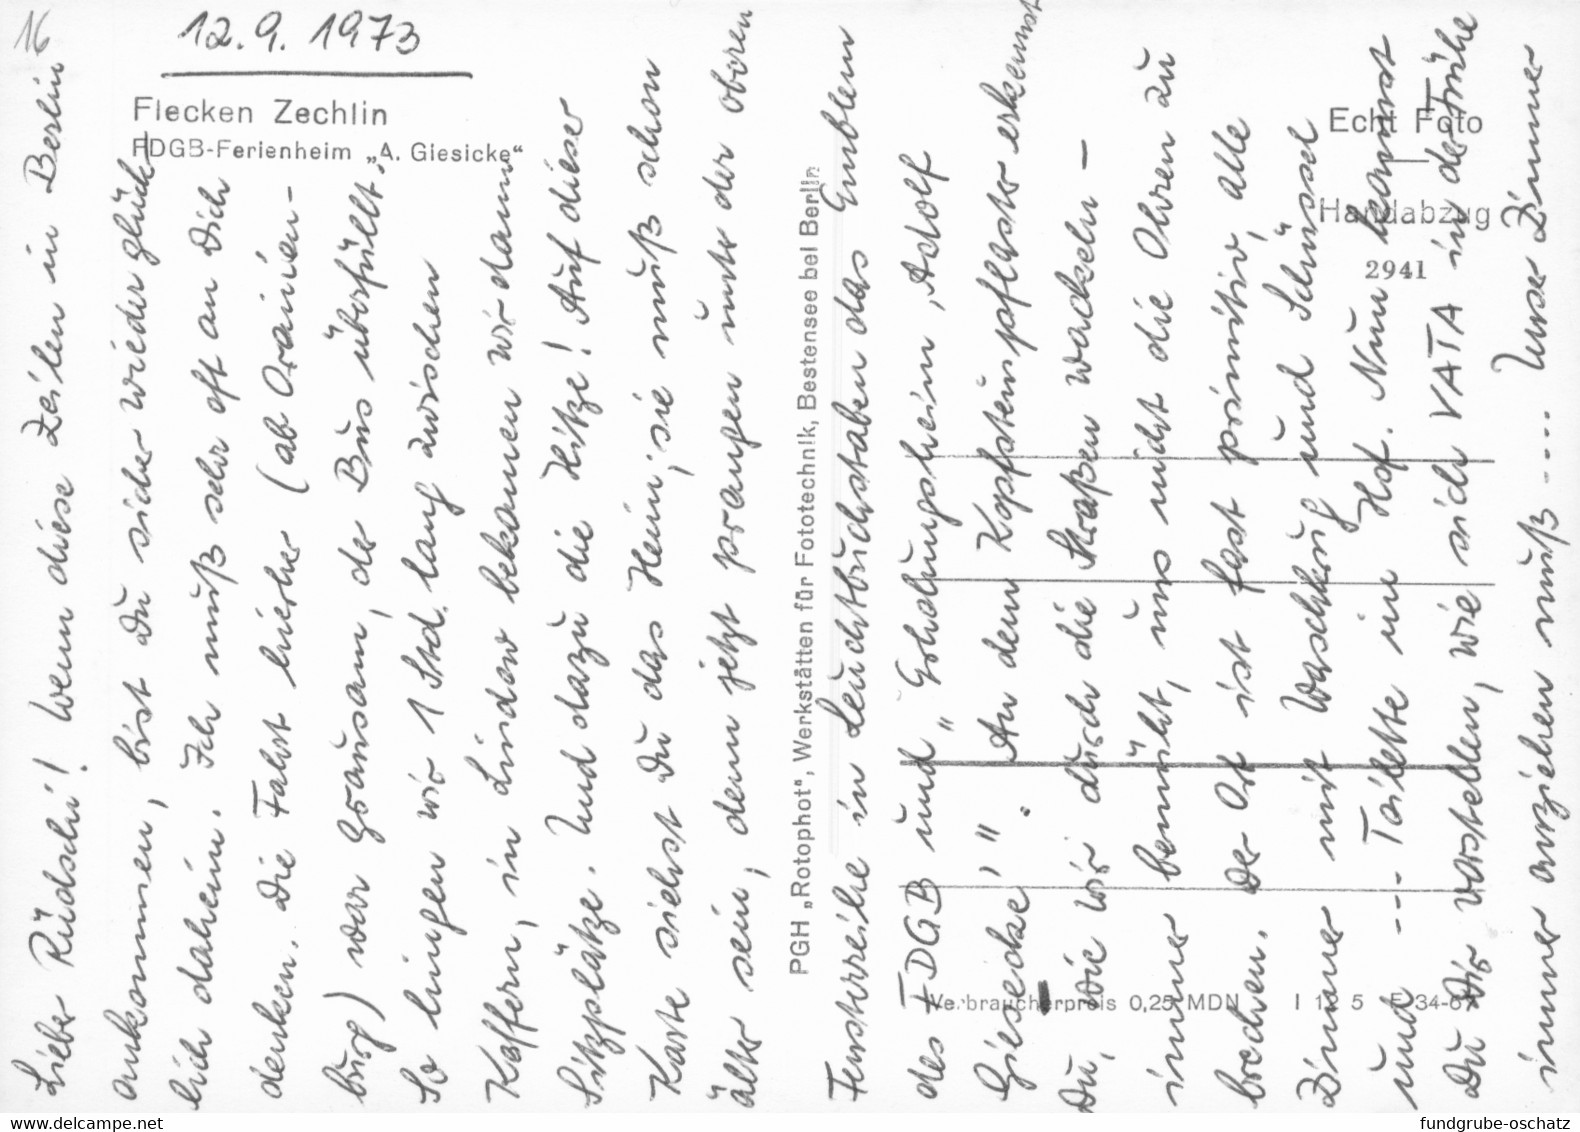 16
12.9.1973
Flecken Zechlin
FDGB-Ferienheim „A. Giesicke“
Echt Foto
Handabzug
2941
PGH „Rotophot“, Werkstätten für Fototechnik, Bestensee bei Berlin
Verbraucherpreis 0,25 MDN I 12 5 E 34-6
Lieber Rüdschi! Wenn diese Zeilen in Berlin
ankommen, bist Du sicher wieder glück-
lich daheim. Ich muß sehr oft an Dich
denken. Die Fahrt hierher (ab Oranien-
burg) war grausam, der Bus überfüllt.
So hingen wir 1 Std. lang zwischen
Koffern, in Lindow bekamen wir dann
Sitzplätze. Und dazu die Hitze! Auf dieser
Karte siehst Du das Heim, sie muß schon
älter sein, denn jetzt prangen unter der oberen
Fensterreihe in Leuchtbuchstaben das Emblem
des FDGB und „Erholungsheim 'Adolf
Giesecke'“. An dem Kopfsteinpflaster erkennst
Du, wie wir durch die Straßen wackeln –
immer bemüht, uns nicht die Ohren zu
brechen. Der Ort ist fast primitiv, alle
Zimmer mit Waschkrug und Schüssel
und --- Toilette im Hof. Nun kannst
Du Dir vorstellen, wie sich VATA in der Frühe
immer anziehen muß .... Unser Zimmer
fundgrube-oschatz
www.delcampe.net